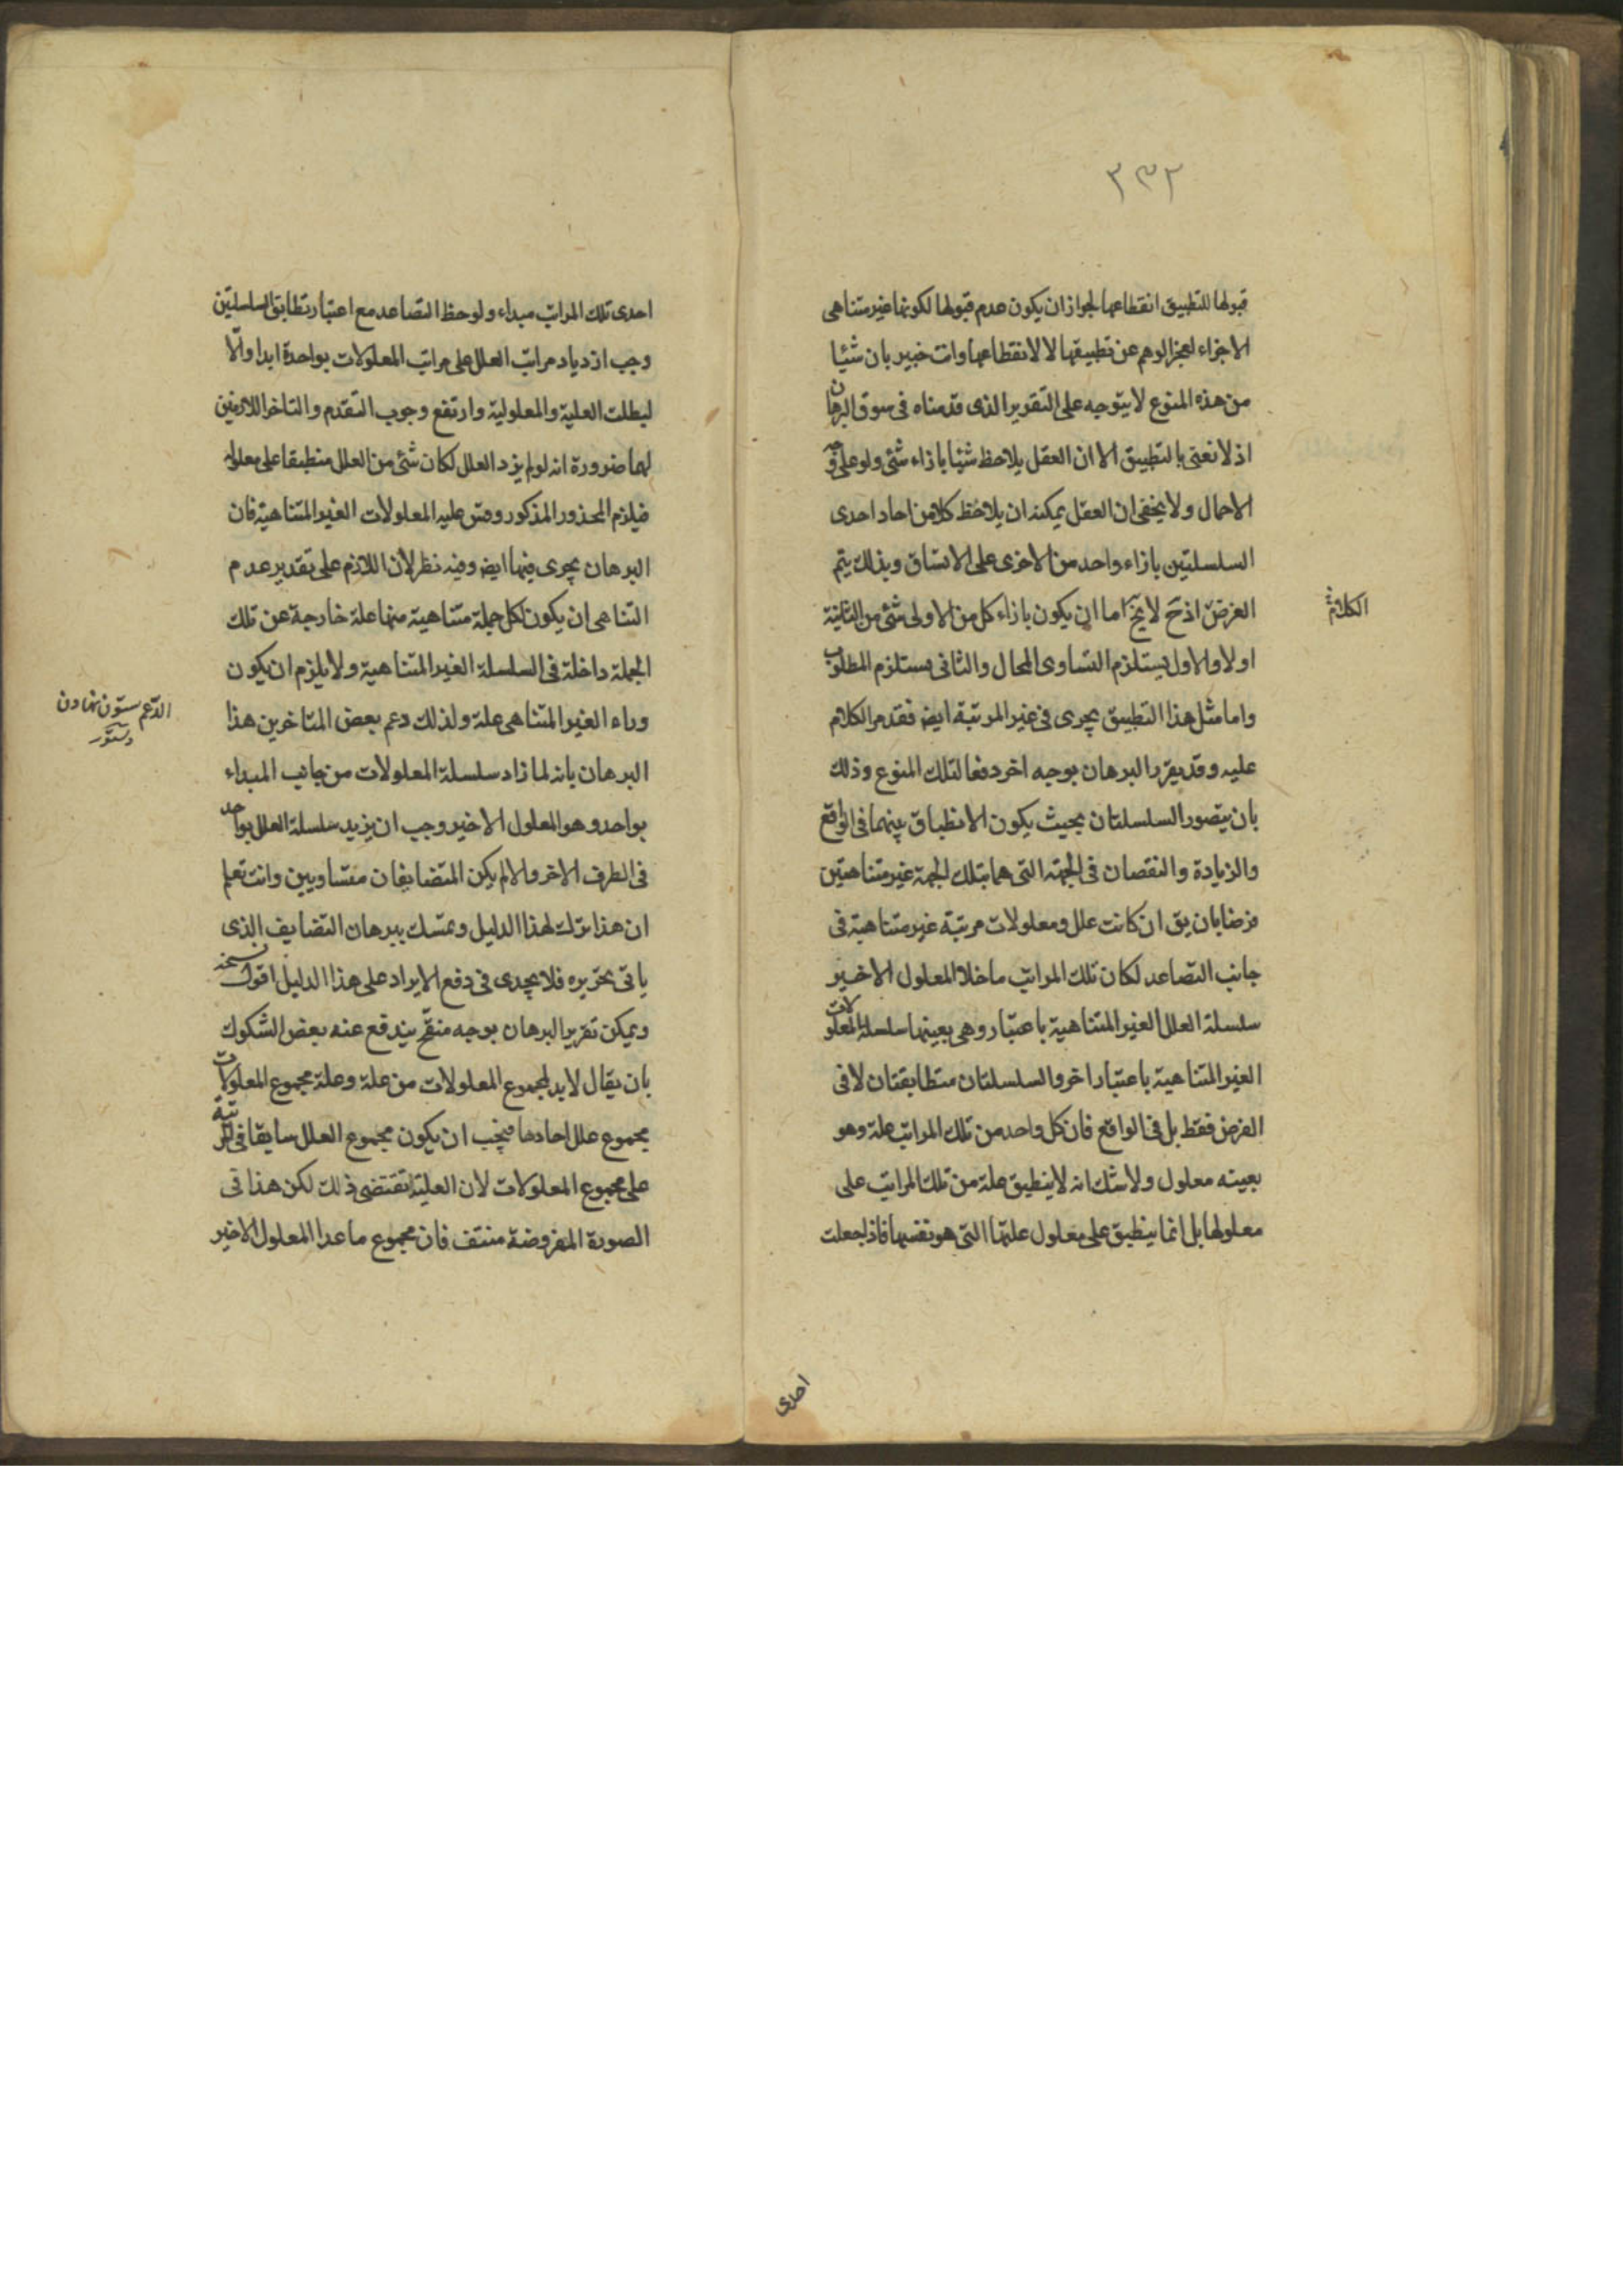 ٣٣٢
قبولها للتطبيق انقطاعها لجواز ان يكون عدم قبولها لكونها غير متناهى
الاجزاء لعجز الوهم عن تطبيقها لا لانقطاعها وانت خبير بان شئيا
من هذه المنوع لا يتوجه على التقرير الذى قدمناه فى سوق البرهان
اذ لا نعنى بالتطبيق الا ان العقل يلاحظ شئيا بازاء شئ ولو على وجه
الاجمال ولا يخفى ان العقل يمكنه ان يلاحظ كلا من احاد احدى
السلسلتين بازاء واحد من الاخرى على الاتساق وبذلك يتم
الغرض اذ ح لا يخ اما ان يكون بازاء كل من الاولى شئ من الثانية
الكلام
او لا والاول يستلزم التساوى المحال والثانى يستلزم المطلوب
واما مثل هذا التطبيق يجرى فى غير المرتبة ايضا فقد مر الكلام
عليه وقد يقرر البرهان بوجه اخر دفعا لتلك المنوع وذلك
بان يتصور السلسلتان بحيث يكون الانطباق بينهما فى الواقع
والزيادة والنقصان فى الجهة التى هما بتلك الجهة غير متناهيتين
فرضا بان يق ان كانت علل ومعلولات مرتبة غير متناهية فى
جانب التصاعد لكان تلك المراتب ما خلا المعلول الاخير
سلسلة العلل الغير المتناهية باعتبار وهى بعينها سلسلة المعلولات
الغير المتناهية باعتبار اخر والسلسلتان متطابقتان لا فى
الفرض فقط بل فى الواقع فان كل واحد من تلك المراتب علة وهو
بعينه معلول ولا شك انه لا ينطبق علة من تلك المراتب على
معلولها بل انما ينطبق على معلول علتها التى هو نفسها فاذا جعلت
احدى
احدى تلك المراتب مبداء ولوحظ التصاعد مع اعتبار تطابق السلسلتين
وجب ازدياد مراتب العلل على مراتب المعلولات بواحدة ابدا والّا
لبطلت العلية والمعلولية وارتفع وجوب التقدم والتاخر اللازمين
لهما ضرورة انه لو لم يزد العلل لكان شئ من العلل منطبقا على معلوله
فيلزم المحذور المذكور وقس عليه المعلولات الغير المتناهية فان
البرهان يجرى فيها ايضا وفيه نظر لان اللازم على تقدير عدم
التناهى ان يكون لكل جملة متناهية منها علة خارجة عن تلك
الجملة داخلة فى السلسلة الغير المتناهية ولا يلزم ان يكون
وراء الغير المتناهى علة ولذلك دعم بعض المتاخرين هذا
الدّعم ستون نهادن
دستور
البرهان بانه لما زاد سلسلة المعلولات من جانب المبداء
بواحد وهو المعلول الاخير وجب ان يزيد سلسلة العلل بواحد
فى الطرف الاخر والا لم يكن المتضايفان متساويين وانت تعلم
ان هذا ترك لهذا الدليل وتمسك ببرهان التضايف الذى
ياتى تحريره فلا يجدى فى دفع الايراد على هذا الدليل اقول
ويمكن تقرير البرهان بوجه منقّح يندفع عنه بعض الشكوك
بان يقال لا بد لمجموع المعلولات من علة وعلة مجموع المعلولات
مجموع علل احادها فيجب ان يكون مجموع العلل سابقا فى المرتبة
على مجموع المعلولات لان العلية تقتضى ذلك لكن هذا فى
الصورة المفروضة منتف فان مجموع ما عدا المعلول الاخير